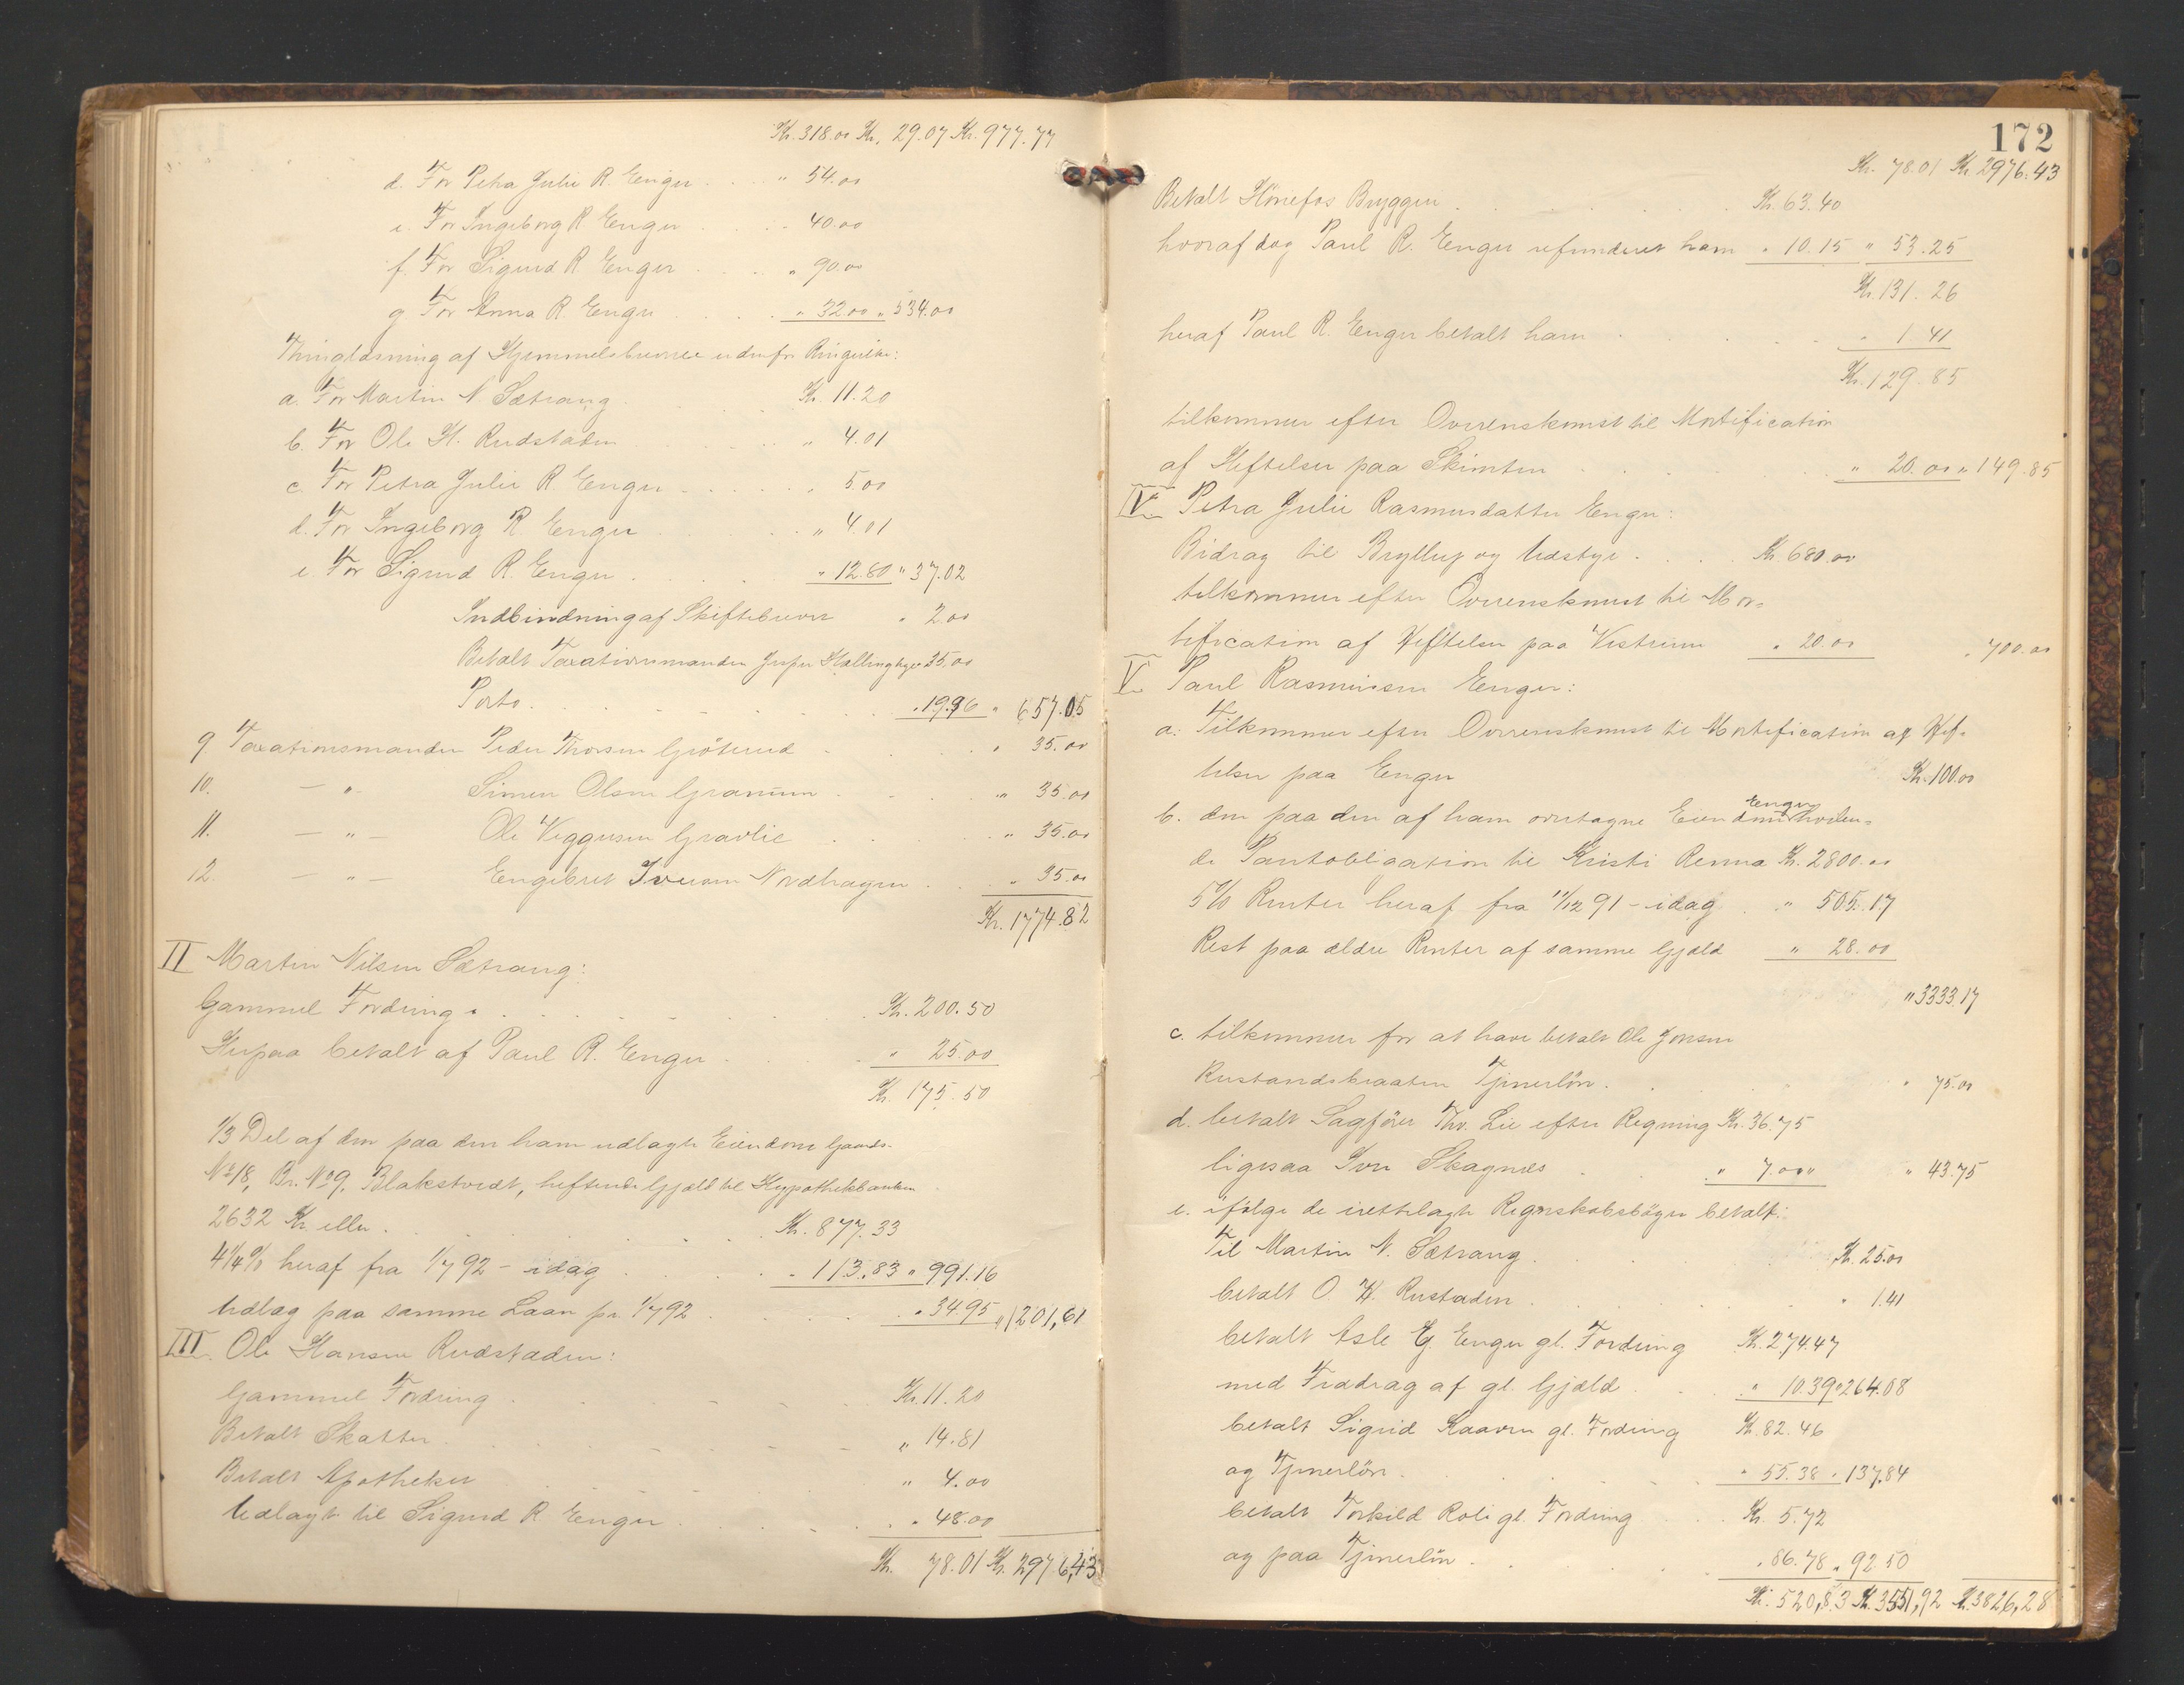 Kr. 318.00 Kr. 29.07 Kr. 977.77
d. For Petra Julie R. Enger . . . " 54.00
e. For Ingeborg R Enger . . . 40.00
f. For Sigurd R Enger . . . " 90.00
g For Anna R. Enger . . . " 32.00 " 534.00
Thinglæsning af Hjemmelsbrevene udenfor Ringerike:
a. For Martin N. Sætrang . Kr. 11.20
b. For Ole H. Rudstaden " 4.01
c. For Petra Julie R Enger . . . " 5 00
d. For Ingeborg R Enger . . . " 4.01
e. For Sigurd R. Enger . . . " 12.80 " 37.02
Indbindning af Skiftebrever " 2.00
Betalt Taxationsmanden Jesper Hallingbye 35.00
Porto . . . " 19.96 " 657.05
9 Taxationsmanden Peder Thorsen Gröterud . " 35.00
10. — " — Simen Olsen Granum . . . " 35.00
11. — " — Ole Viggersen Gravlie . . . " 35.00
12. — " — Engebret Iversen Nordhagen . . " 35.00
Kr. 1774.82
II Martin Nilsen Sætrang:
Gammel Fordring . . . Kr. 200.50
Herpaa betalt af Paul R. Enger . . " 25.00
Kr. 175.50
1/3 Del af den paa den ham udlagte Eiendom Gaards-
No 18, Br. No 9. Blakstvedt, heftende Gjæld til Hypothekbanken
2632 Kr. eller . . . Kr. 877.33
4 1/4 % heraf fra 1/7 92 - idag . . . " 113.83 " 991.16
Udlæg paa samme Laan pr. 1/7 92 . . . " 34.95 " 1201,61
III. Ole Hansen Rudstaden:
Gammel Fordring . . . Kr. 11.20
Betalt Skatter . . . " 14.81
Betalt Apotheker " 4.00
Udlagt til Sigurd R Enger . . . " 48.00
Kr. 78.01 Kr. 2976,43
172
Kr. 78.01 Kr. 2976.43
Betalt Hönefos Bryggeri . . . Kr. 63.40
hvoraf dog Paul R. Enger refunderet ham " 10.15 " 53.25
Kr. 131.26
heraf Paul R. Enger betalt ham . . . " 1 41
Kr. 129.85
tilkommer efter Overenskomst til Mortification
af Heftelser paa Skimten . . . " 20.00 " 149.85
IV Petra Julie Rasmusdatter Enger:
Bidrag til Bryllup og Udstyr . . . Kr. 680.00
tilkommer efter Overenskomst til Mor-
tification af Heftelser paa Vestrum " 20.00 " 700.00
V Paul Rasmussen Enger:
a. Tilkommer efter Overenskomst til Mortification af Hef-
telser paa Enger Kr. 100.00
b. den paa den af ham overtagne Eiendom Enger heften-
de Pantobligation til Kristi Renna Kr. 2800.00
5 % Renter heraf fra 11/12 91 - idag . " 505.17
Rest paa ældre Renter af samme Gjæld " 28.00
" 3333.17
c. tilkommer for at have betalt Ole Jonsen
Rustandsbraaten Tjenerlön . . " 75.00
d. betalt Sagförer Thv. Lie efter Regning Kr. 36.75
ligesaa Iver Skagnæs . . " 7.00 " " 43.75
e. ifölge de irettelagte Regnskabsböger betalt:
Til Martin N. Sætrang . . . Kr. 25.00
betalt O. H. Rustaden . . . " 1.41
betalt Asle G. Enger gl. Fordring Kr. 274.47
med Fradrag af gl. Gjæld . . . " 10.39 " 264.08
betalt Sigrid Kaaven gl. Fordring Kr. 82.46
og Tjenerlön . . . " 55.38 " 137.84
betalt Torkild Roli gl. Fordring . . Kr. 5.72
og paa Tjenerlön . . . " 86.78 " 92 50
Kr. 520,83 Kr. 3551,92 Kr. 3826,28